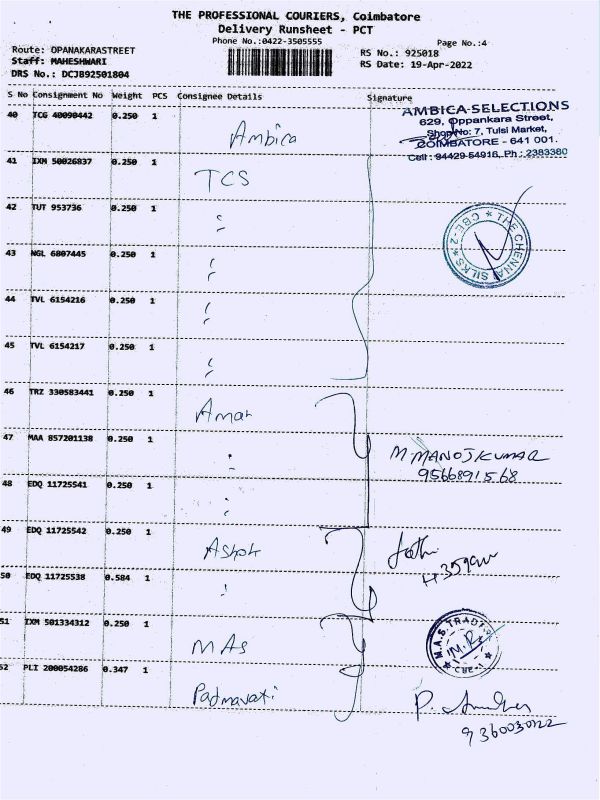 THE PROFESSIONAL COURIERS, Coimbatore
Delivery Runsheet - PCT
Phone No.:0422-3505555
Page No.:4
Route: OPANAKARASTREET
Staff: MAHESHWARI
DRS No.: DCJB92501804
RS No.: 925018
RS Date: 19-Apr-2022
S No Consignment No Weight PCS Consignee Details Signature
40 TCG 40090442 0.250 1 Ambica
AMBICA SELECTIONS
629, Oppankara Street,
Shop No: 7, Tulsi Market,
COIMBATORE - 641 001.
Cell : 94429 54916, Ph : 2383380
41 IXM 50026837 0.250 1 TCS
42 TUT 953736 0.250 1 "
THE CHENNAI SILKS * CBE-2 *
43 NGL 6807445 0.250 1 "
44 TVL 6154216 0.250 1 "
45 TVL 6154217 0.250 1 "
46 TRZ 330583441 0.250 1 Amar
47 MAA 857201138 0.250 1 "
M MANOJKUMAR
9566891568
48 EDQ 11725541 0.250 1 "
49 EDQ 11725542 0.250 1 Ashok
50 EDQ 11725538 0.584 1 "
51 IXM 501334312 0.250 1 MAS
M.A.S TRADERS
M.R.
* CBE-1 *
52 PLI 200054286 0.347 1 Padmavati
P.
9360030122